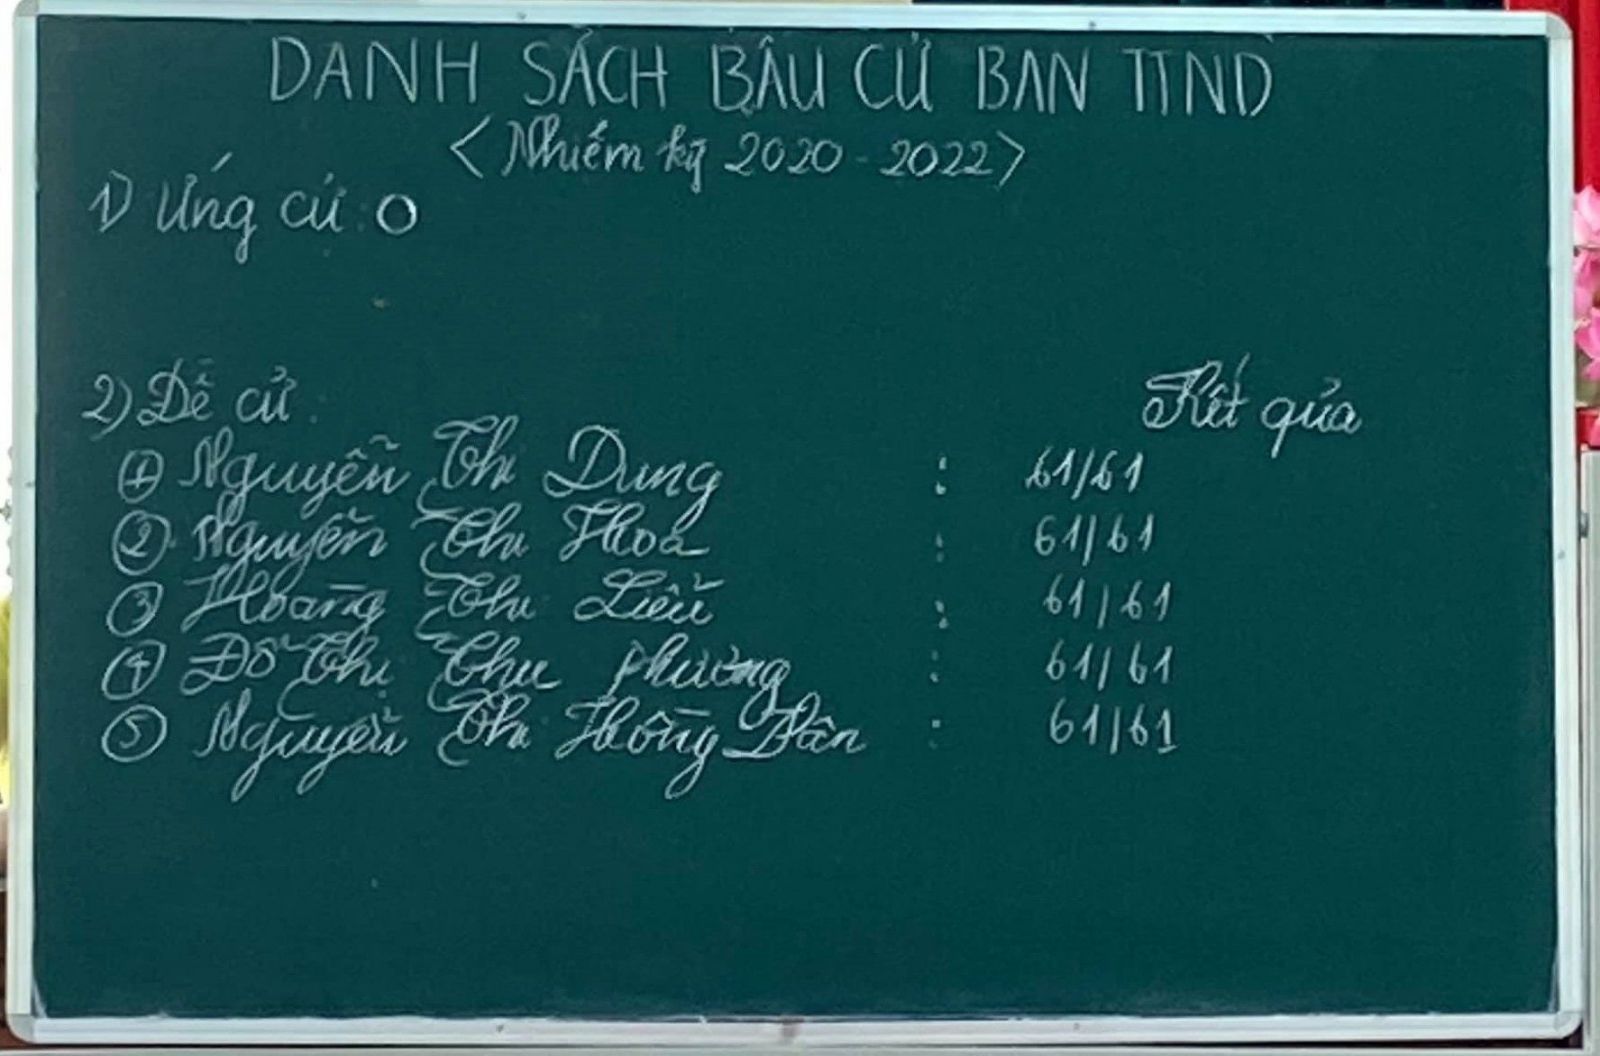 DANH SÁCH BẦU CỬ BAN TTND
<Nhiệm kỳ 2020-2022>
1) Ứng cử: 0
2) Đề cử:
Kết qủa
① Nguyễn Thị Dung : 61/61
② Nguyễn Thị Hoa : 61/61
③ Hoàng Thị Liễu : 61/61
④ Đỗ Thị Thu Phương : 61/61
⑤ Nguyễn Thị Hồng Vân : 61/61